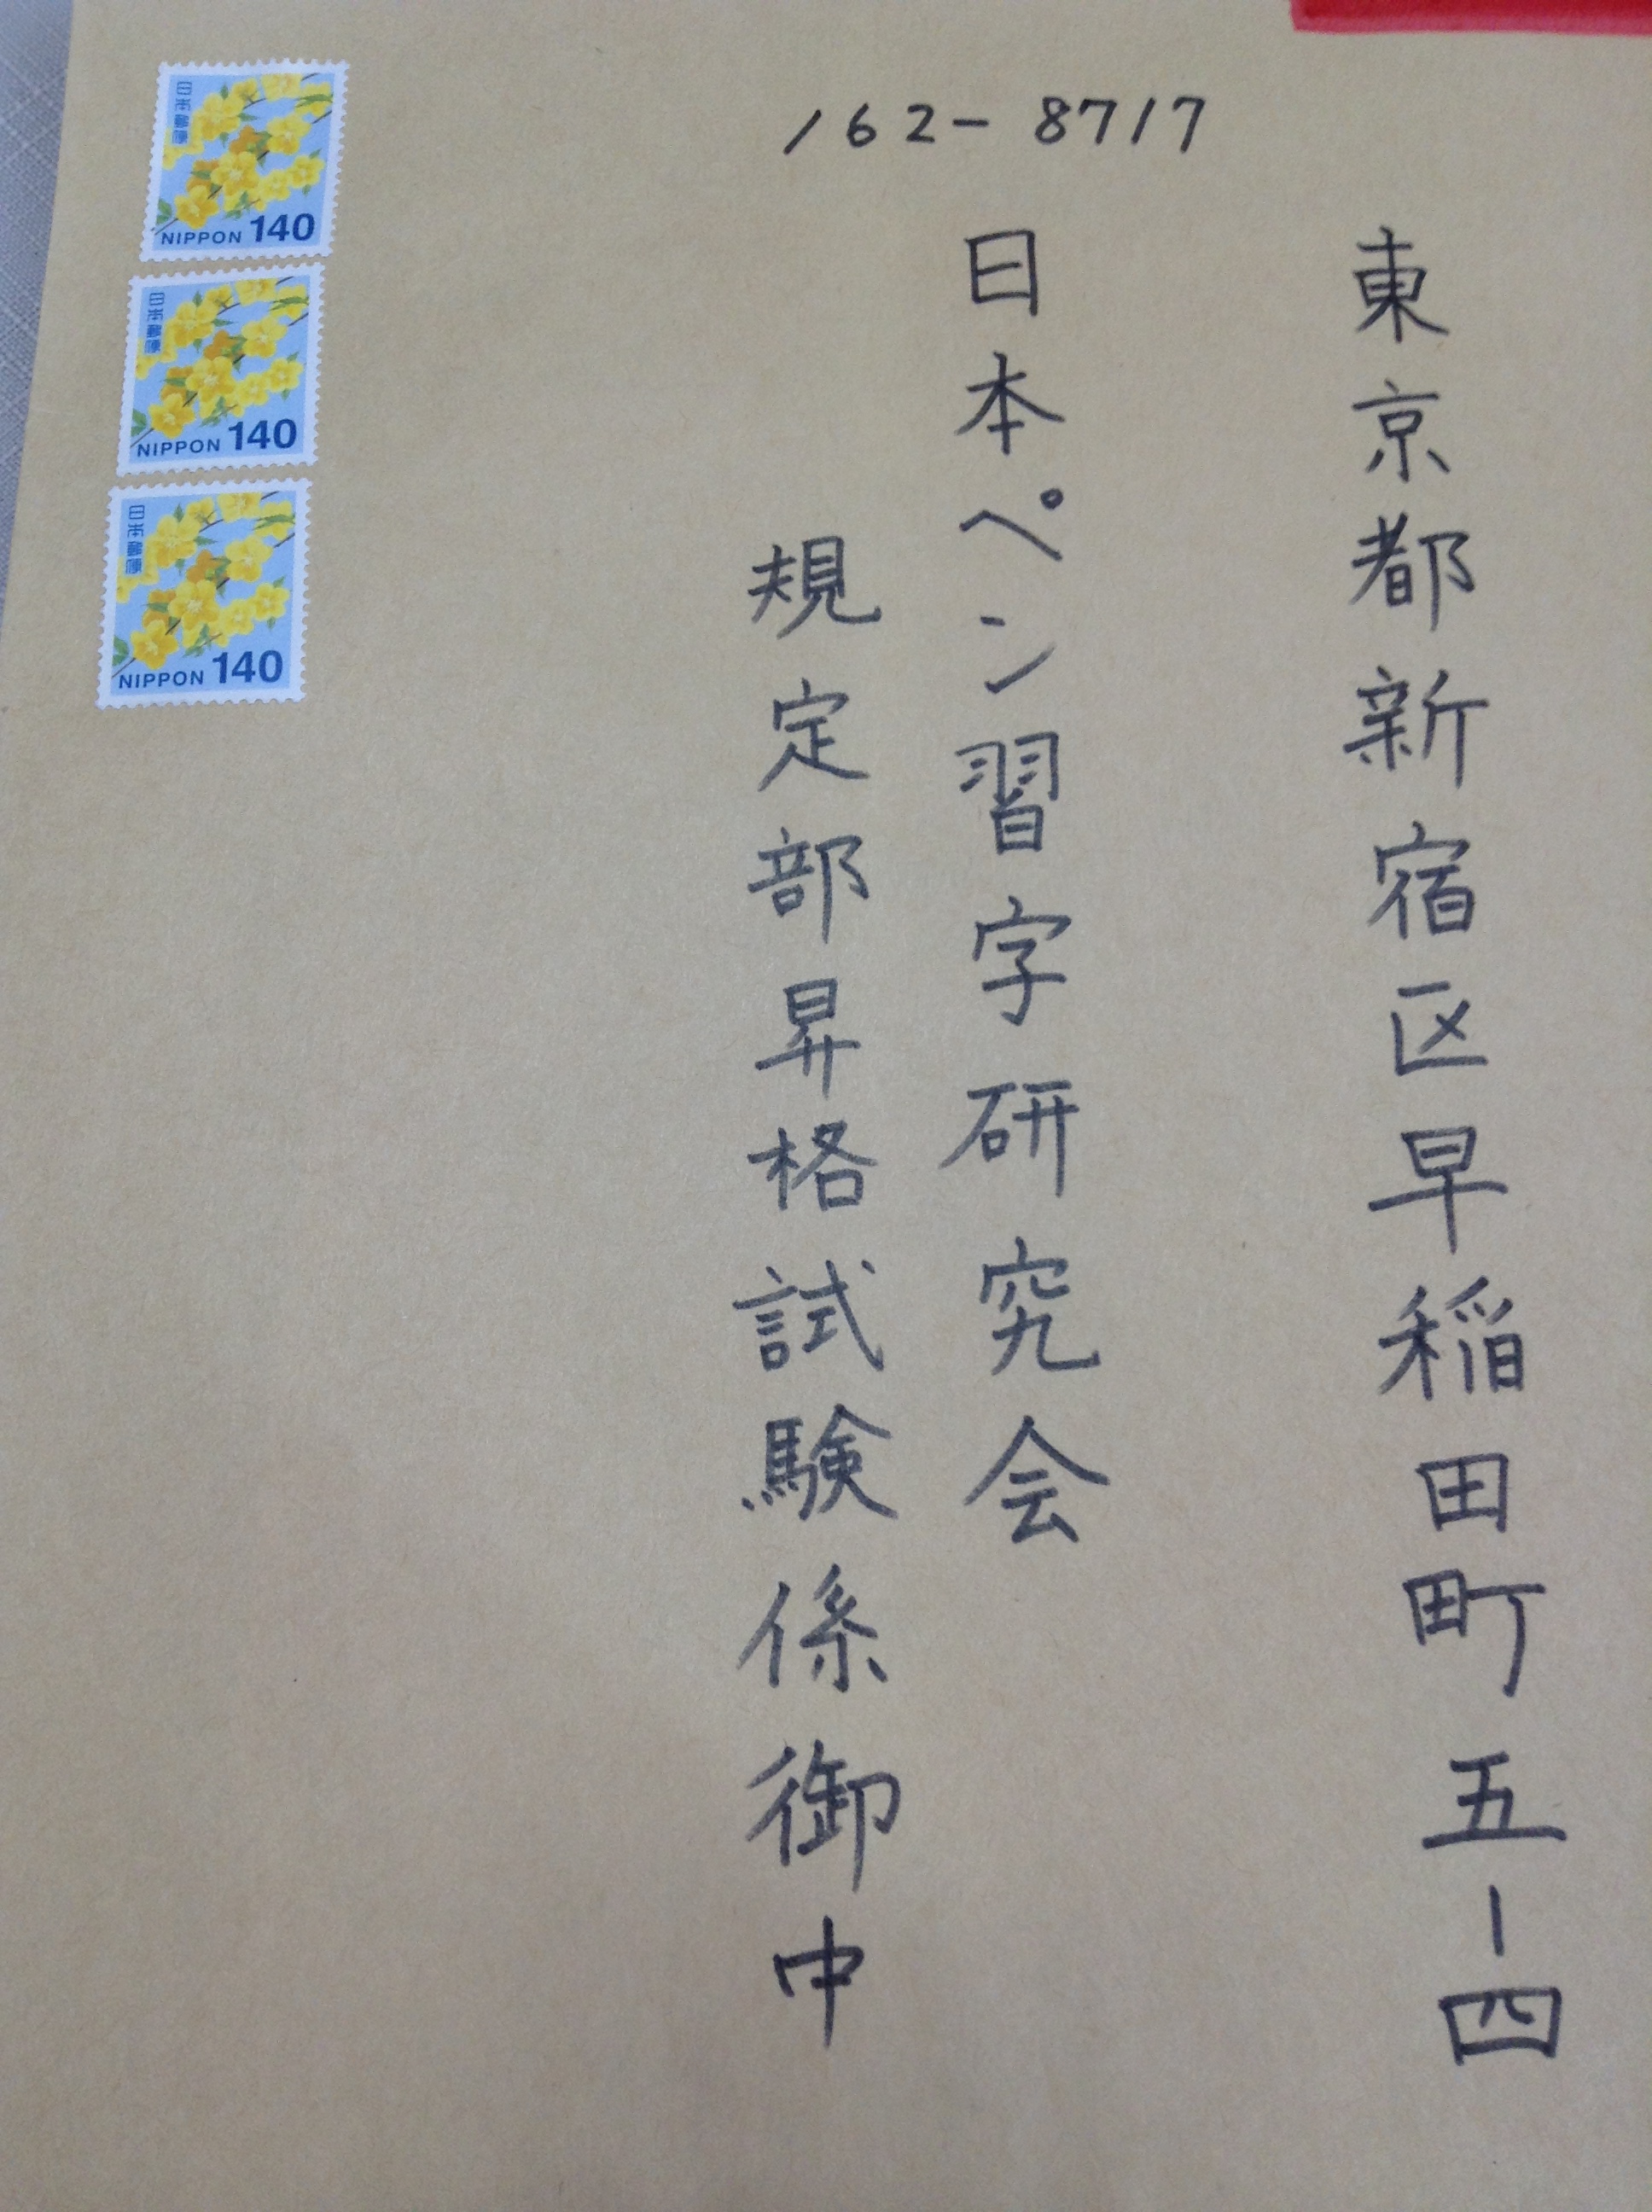 162-8717
東京都新宿区早稲田町五-四
日本ペン習字研究会
規定部昇格試験係御中
日本郵便
NIPPON 140
日本郵便
NIPPON 140
日本郵便
NIPPON 140